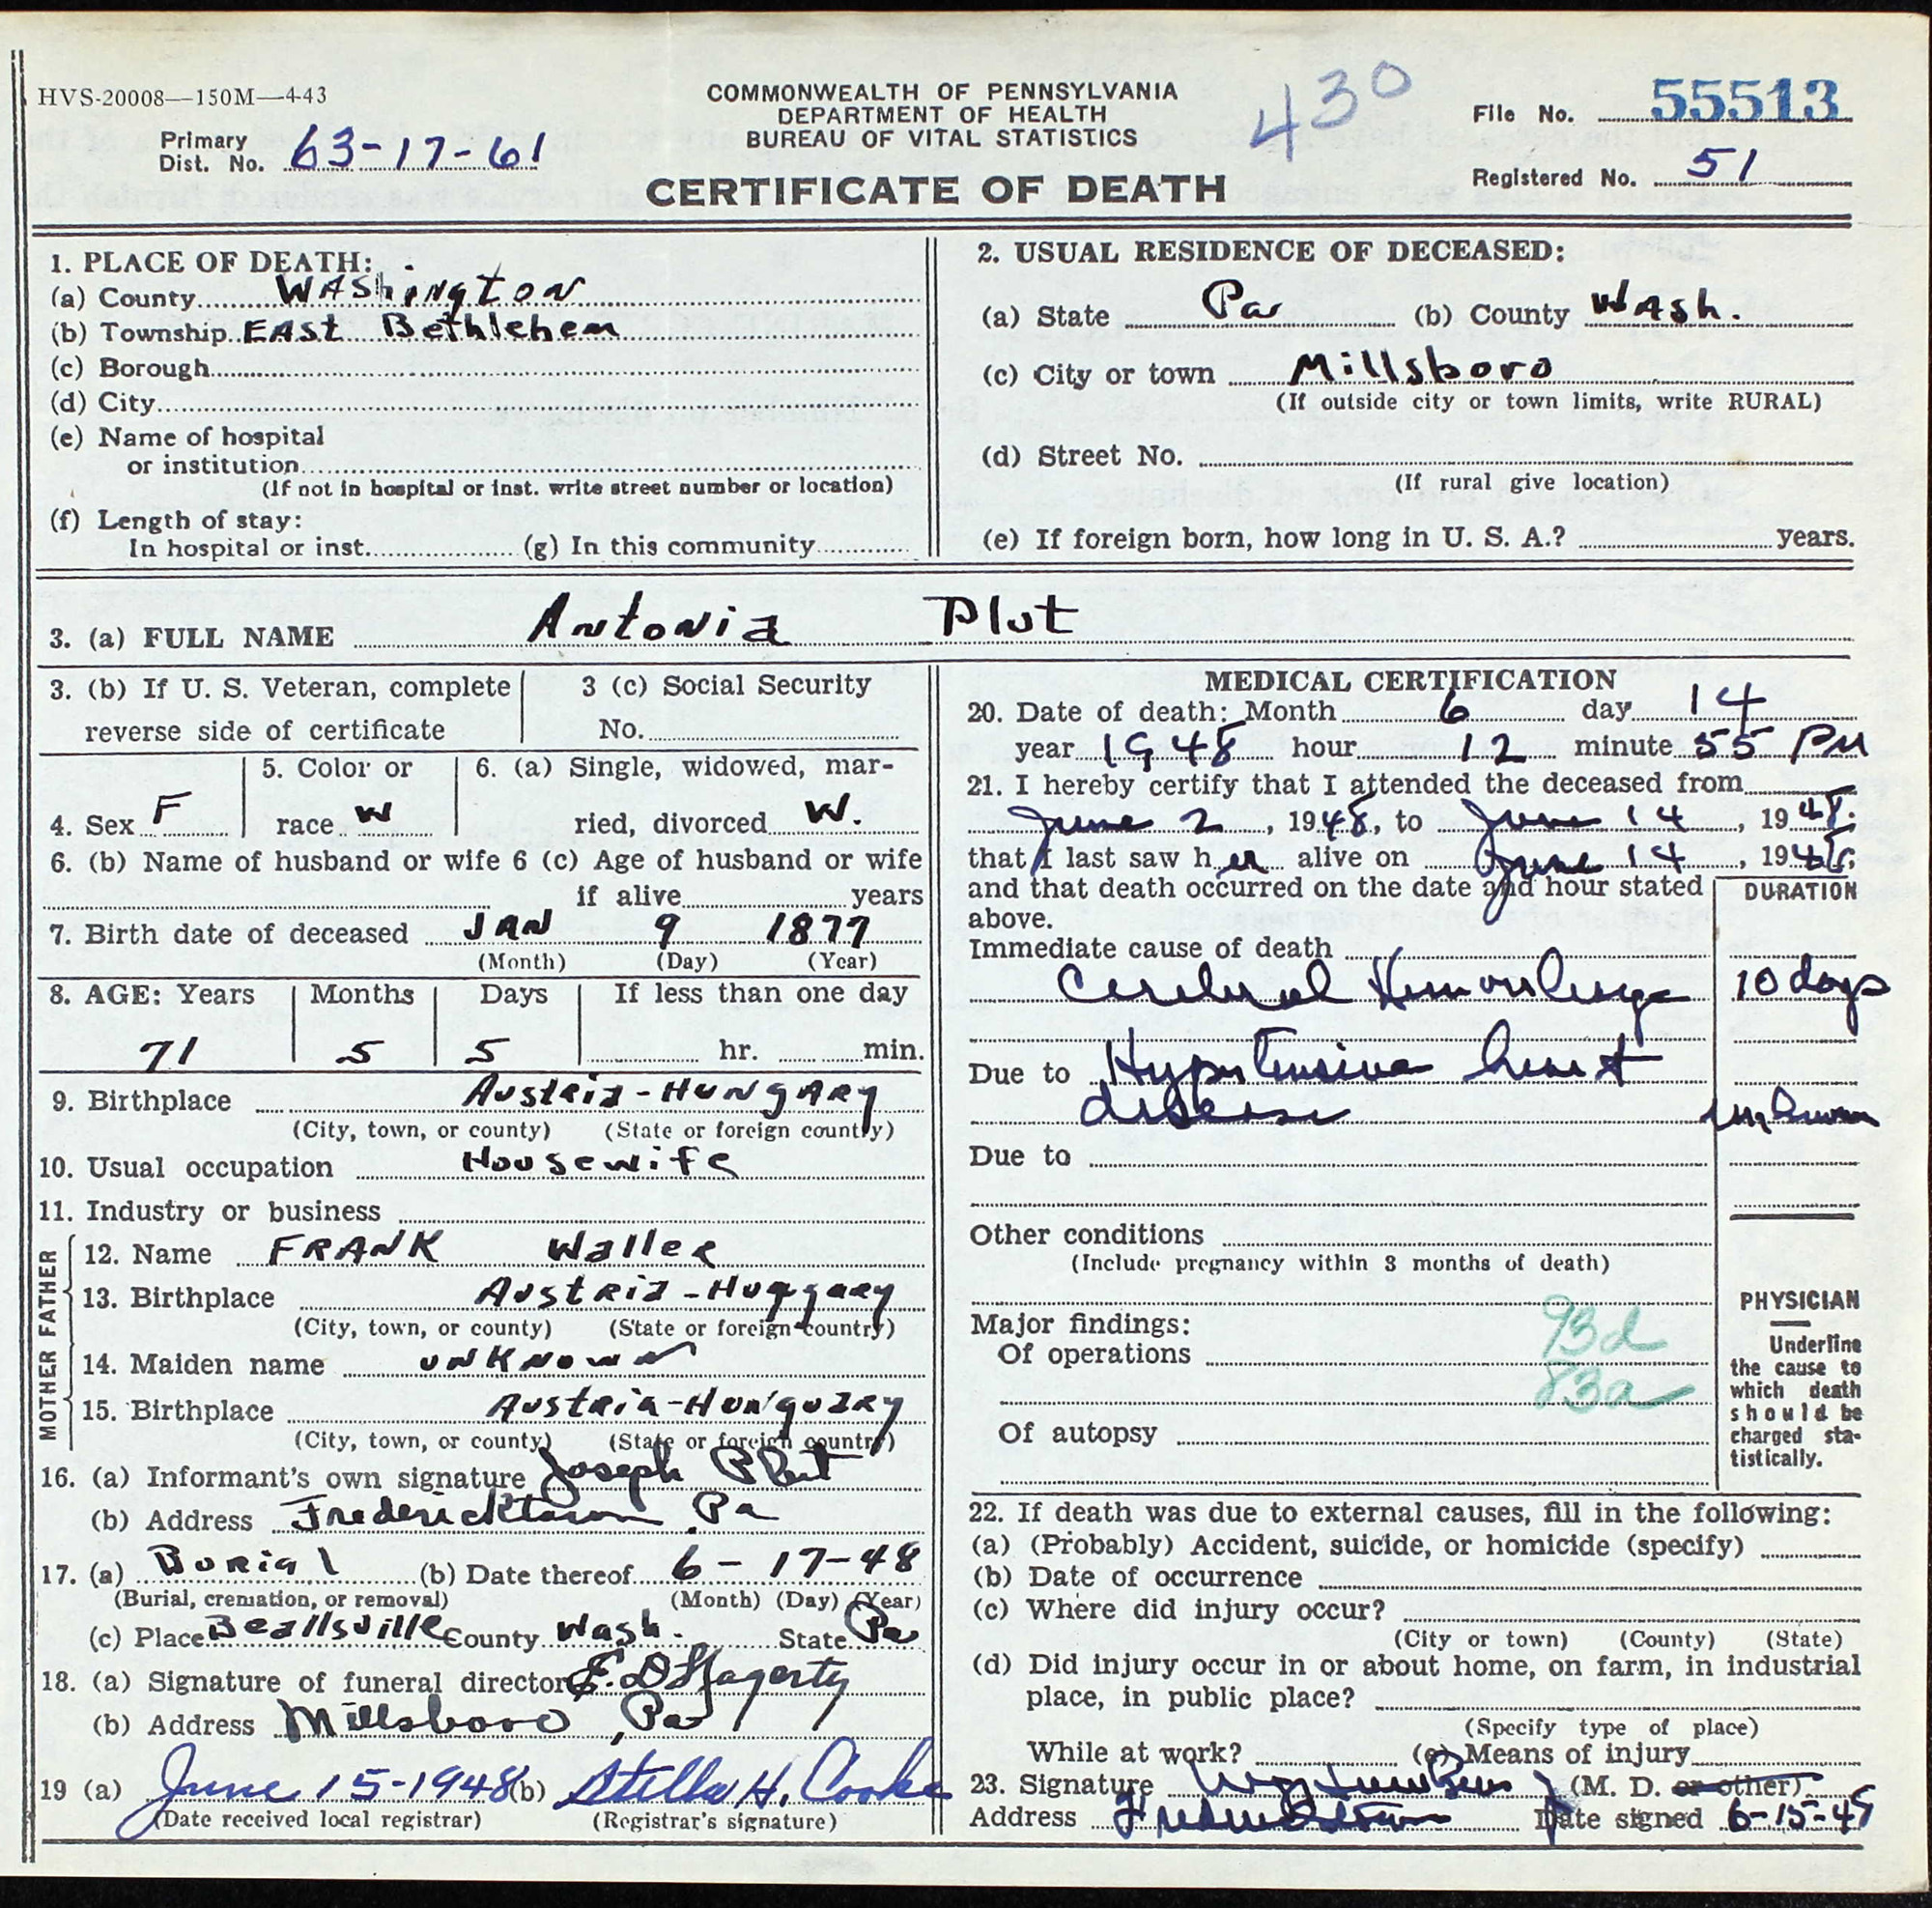 HVS-20008—150M—4-43
COMMONWEALTH OF PENNSYLVANIA
DEPARTMENT OF HEALTH
BUREAU OF VITAL STATISTICS
CERTIFICATE OF DEATH
430
Primary Dist. No. 63-17-61
File No. 55513
Registered No. 51
1. PLACE OF DEATH:
(a) County WAShington
(b) Township EASt Bethlehem
(c) Borough
(d) City
(e) Name of hospital
or institution
(If not in hospital or inst. write street number or location)
(f) Length of stay:
In hospital or inst. (g) In this community
2. USUAL RESIDENCE OF DECEASED:
(a) State Pa (b) County WAsh.
(c) City or town Millsboro
(If outside city or town limits, write RURAL)
(d) Street No.
(If rural give location)
(e) If foreign born, how long in U. S. A.? years.
3. (a) FULL NAME Antonia Plut
3. (b) If U. S. Veteran, complete
reverse side of certificate
3 (c) Social Security
No.
4. Sex F
5. Color or
race W
6. (a) Single, widowed, mar-
ried, divorced W.
6. (b) Name of husband or wife 6 (c) Age of husband or wife
if alive years
7. Birth date of deceased JAN 9 1877
(Month) (Day) (Year)
8. AGE: Years Months Days If less than one day
71 5 5 hr. min.
9. Birthplace Austria-HUNgARy
(City, town, or county) (State or foreign country)
10. Usual occupation Housewife
11. Industry or business
FATHER
12. Name FRANK
13. Birthplace AustRia-Huggary
(City, town, or county) (State or foreign country)
MOTHER
14. Maiden name unKnown
15. Birthplace AustRia-Hunguary
(City, town, or county) (State or foreign country)
16. (a) Informant's own signature Joseph Plut
(b) Address Fredericktown Pa
17. (a) BuRial (b) Date thereof 6-17-48
(Burial, cremation, or removal) (Month) (Day) (Year)
(c) Place Beallsville County Wash. State Pa
18. (a) Signature of funeral director E. D Hagerty
(b) Address Millsboro, Pa
19 (a) June 15-1948 (b) Stella H. Cooke
(Date received local registrar) (Registrar's signature)
MEDICAL CERTIFICATION
20. Date of death: Month 6 day 14
year 1948 hour 12 minute 55 PM
21. I hereby certify that I attended the deceased from
June 2, 1948, to June 14, 1948.
that I last saw her alive on June 14, 1948.
and that death occurred on the date and hour stated
above.
DURATION
Immediate cause of death
Cerebral Hemorrhage 10 days
Due to Hypertensive heart
disease unknown
Due to
Other conditions
(Include pregnancy within 3 months of death)
Major findings: 93d
Of operations
83a
Of autopsy
PHYSICIAN
Underline
the cause to
which death
should be
charged sta-
tistically.
22. If death was due to external causes, fill in the following:
(a) (Probably) Accident, suicide, or homicide (specify)
(b) Date of occurrence
(c) Where did injury occur?
(City or town) (County) (State)
(d) Did injury occur in or about home, on farm, in industrial
place, in public place?
(Specify type of place)
While at work? (e) Means of injury
23. Signature (M. D. or other)
Address Fredericktown Date signed 6-15-48